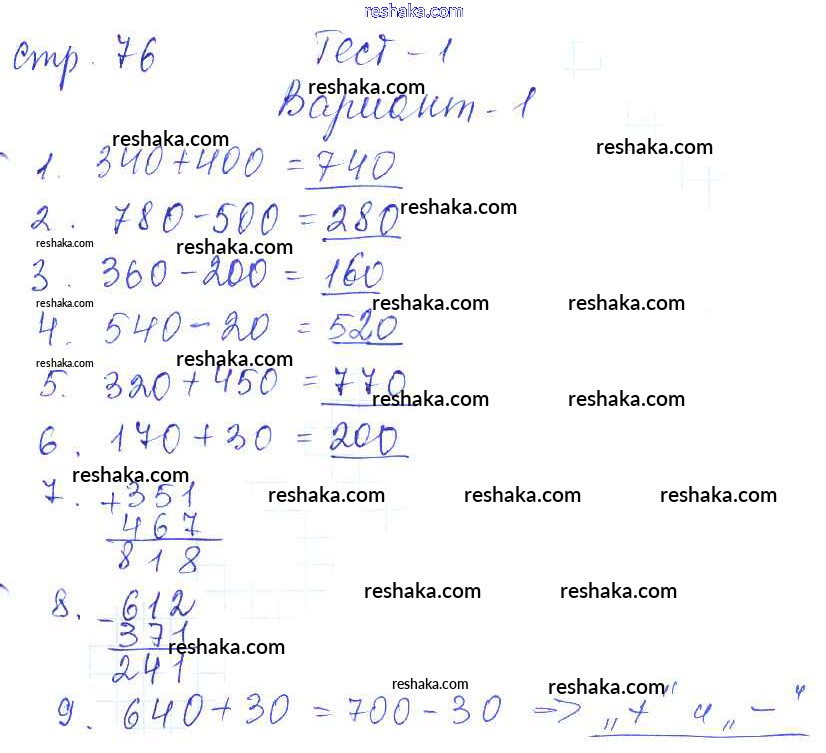 reshaka.com
стр. 76 Тест-1
reshaka.com
Вариант-1
reshaka.com reshaka.com
1. 340+400 = 740
2. 780-500 = 280 reshaka.com
reshaka.com reshaka.com
3. 360-200 = 160
reshaka.com reshaka.com reshaka.com
4. 540-20 = 520
reshaka.com reshaka.com
5. 320+450 = 770
reshaka.com reshaka.com
6. 170+30 = 200
reshaka.com
7. +351 reshaka.com reshaka.com reshaka.com
467
818
reshaka.com reshaka.com
8. -612
371
reshaka.com
241
reshaka.com
9. 640+30 = 700-30 => „+" и „-"